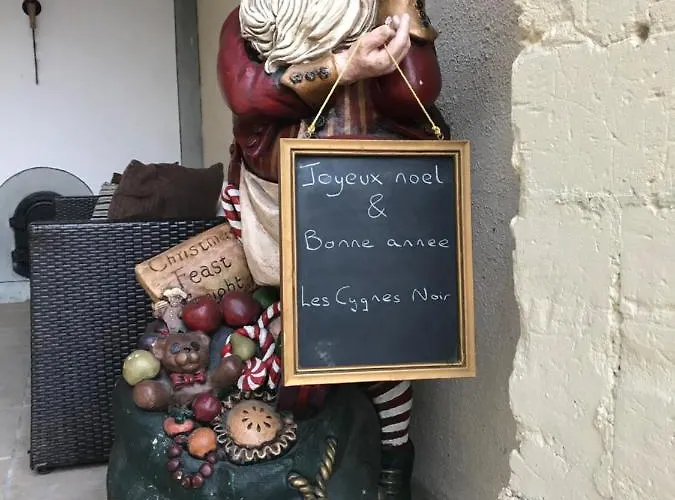 Joyeux noel
&
Bonne annee
Les Cygnes Noir
Christmas
Feast